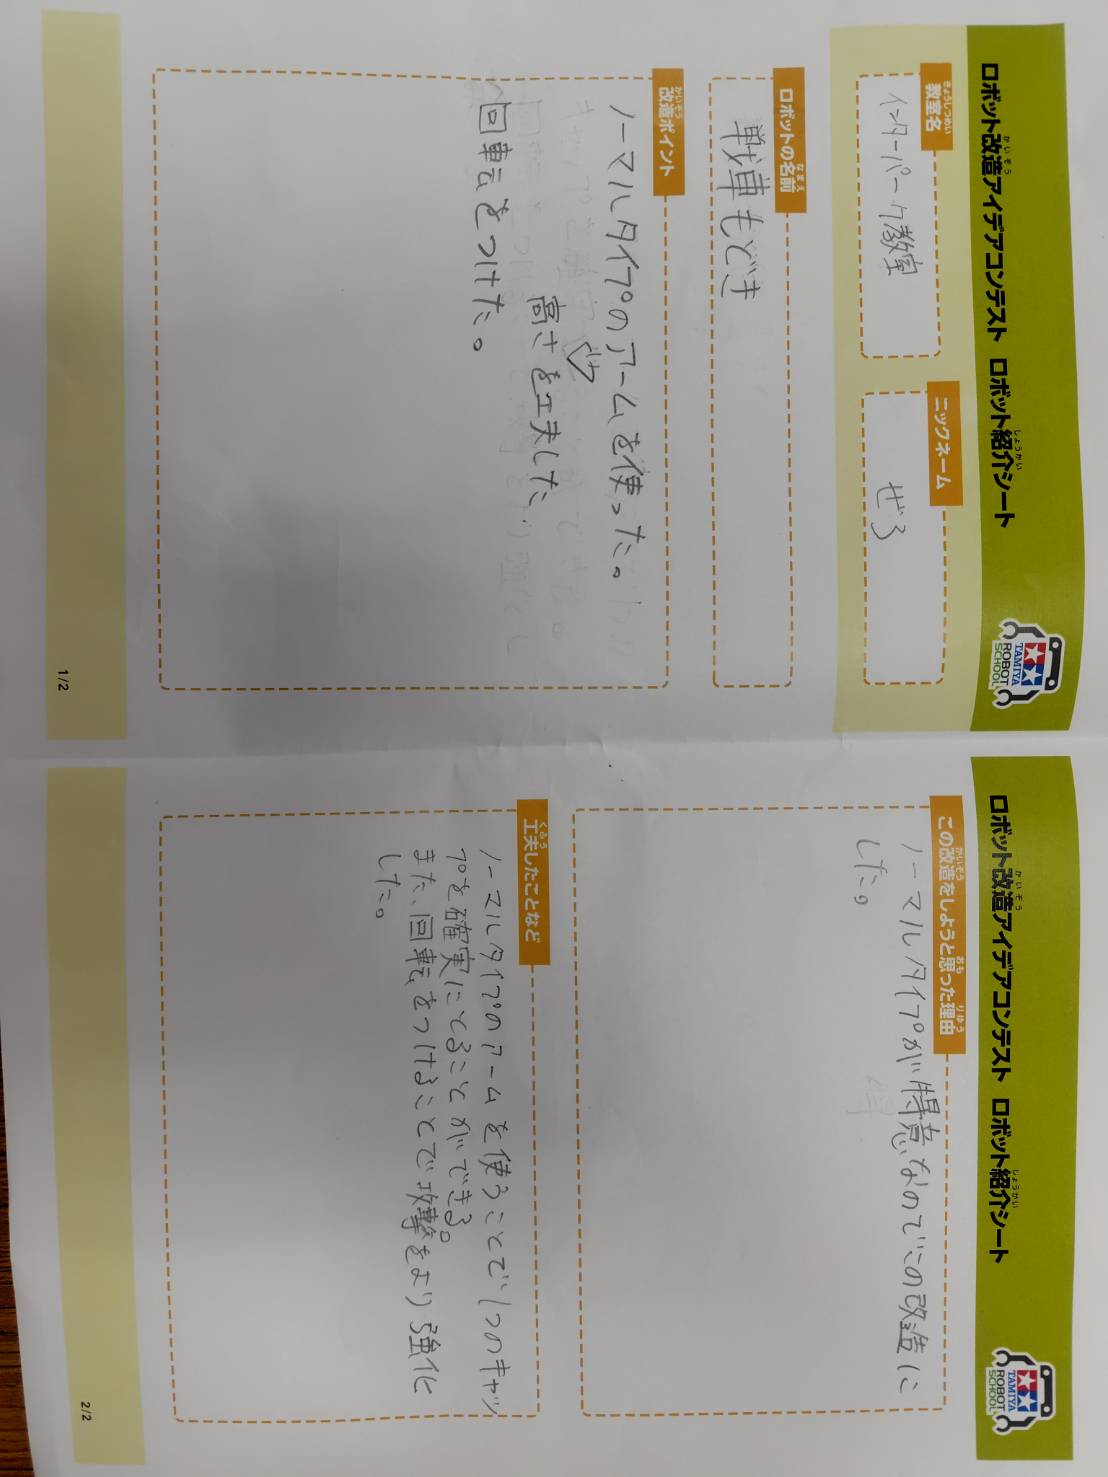 ロボット改造アイデアコンテスト ロボット紹介シート
かいぞう
しょうかい
TAMIYA
ROBOT
SCHOOL
きょうしつめい
教室名
インターパーク教室
ニックネーム
ぜろ
ロボットの名前
なまえ
戦車もどき
かいぞう
改造ポイント
ノーマルタイプのアームを使った。
高さを工夫した
回転をつけた。
1/2
ロボット改造アイデアコンテスト ロボット紹介シート
かいぞう
しょうかい
TAMIYA
ROBOT
SCHOOL
かいぞう おも りゆう
この改造をしようと思った理由
ノーマルタイプが得意なのでこの改造に
した。
くふう
工夫したことなど
ノーマルタイプのアームを使うことで1つのキャッ
プを確実にとることができる。
また、回転をつけることで攻撃をより強化
した。
2/2